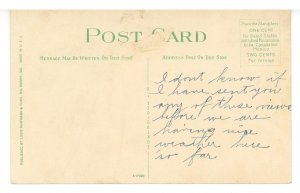 POST CARD
MESSAGE MAY BE WRITTEN ON THIS SIDE
ADDRESS ONLY ON THIS SIDE
Place the Stamp Here
ONE CENT
For United States
and Island Possessions
Cuba, Canada and
Mexico
TWO CENTS
For Foreign
I dont know if
I have sent you
any of these views
before we are
having nice
weather here
so far